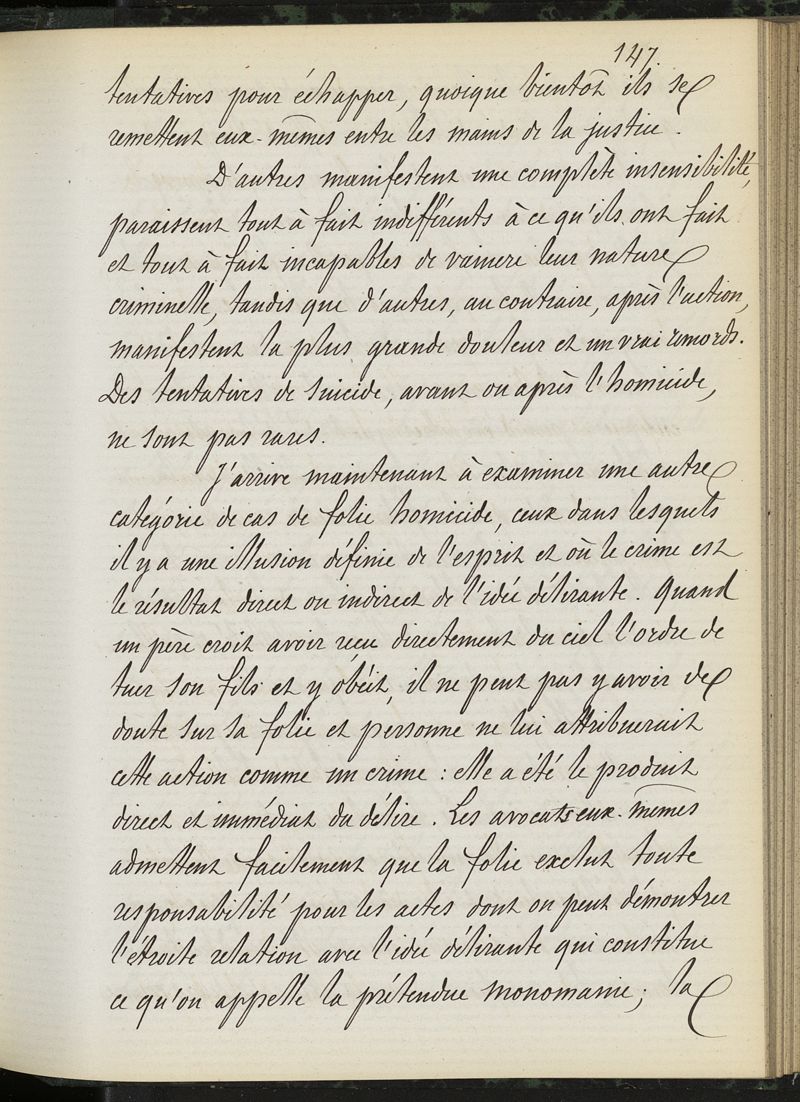 147.
tentatives pour échapper, quoique bientôt ils se
remettent eux-mêmes entre les mains de la justice.
D'autres manifestent une complète insensibilité,
paraissent tout à fait indifférents à ce qu'ils ont fait
et tout à fait incapables de vaincre leur nature
criminelle, tandis que d'autres, au contraire, après l'action,
manifestent la plus grande douleur et un vrai remords.
Des tentatives de suicide, avant ou après l'homicide,
ne sont pas rares.
J'arrive maintenant à examiner une autre
catégorie de cas de folie homicide, ceux dans lesquels
il y a une illusion définie de l'esprit et où le crime est
le résultat direct ou indirect de l'idée délirante. Quand
un père croit avoir reçu directement du ciel l'ordre de
tuer son fils et y obéit, il ne peut pas y avoir de
doute sur sa folie et personne ne lui attribuerait
cette action comme un crime : elle a été le produit
direct et immédiat du délire. Les avocats eux-mêmes
admettent facilement que la folie exclut toute
responsabilité pour les actes dont on peut démontrer
l'étroite relation avec l'idée délirante qui constitue
ce qu'on appelle la prétendue monomanie; la